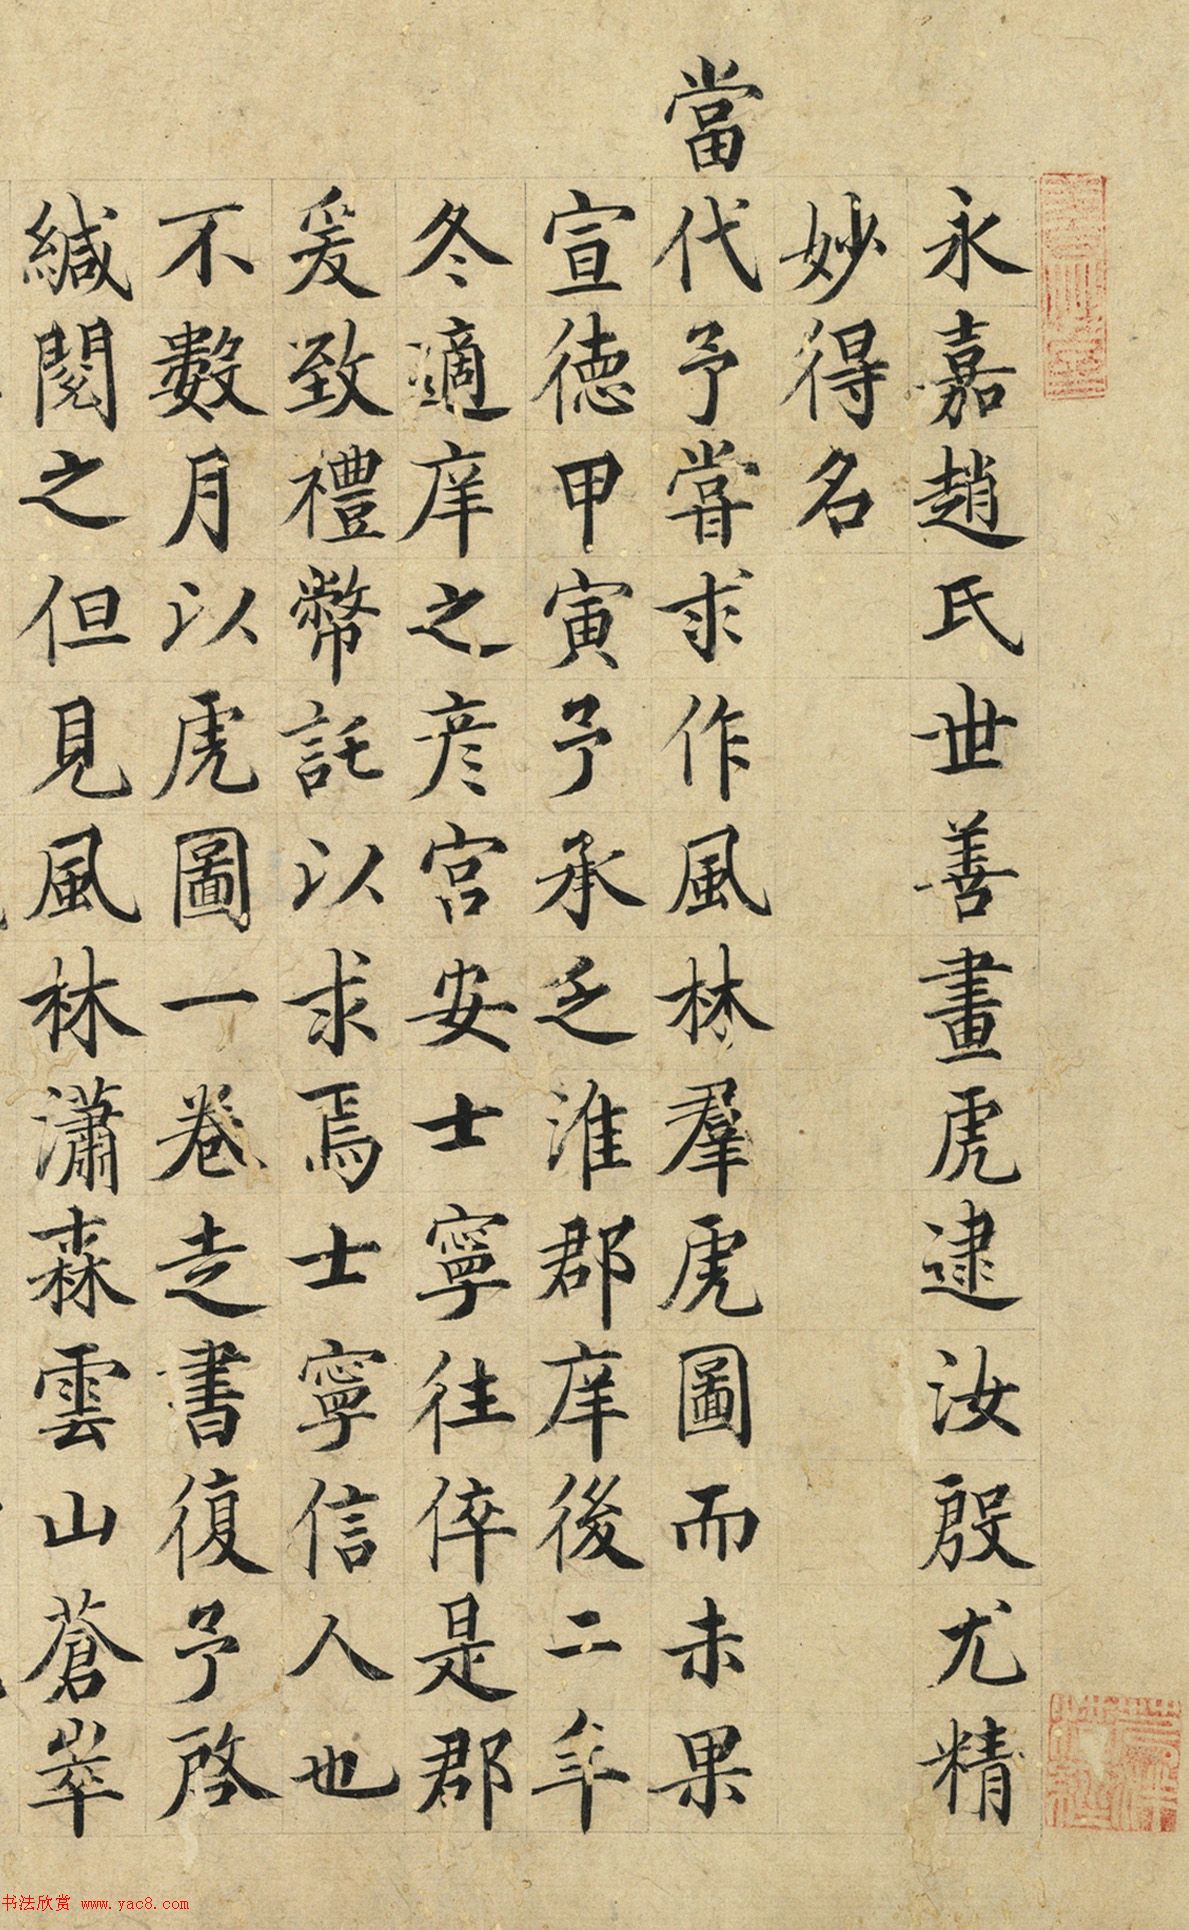 永嘉趙氏世善畫虎逮汝殷尤精
妙得名
當代予嘗求作風林羣虎圖而未果
宣德甲寅予承乏淮郡庠後二年
冬適庠之彦宫安士寧往倅是郡
爰致禮幣託以求焉士寧信人也
不數月以虎圖一卷走書復予啓
緘閱之但見風林瀟森雲山蒼崒
书法欣赏 www.yac8.com